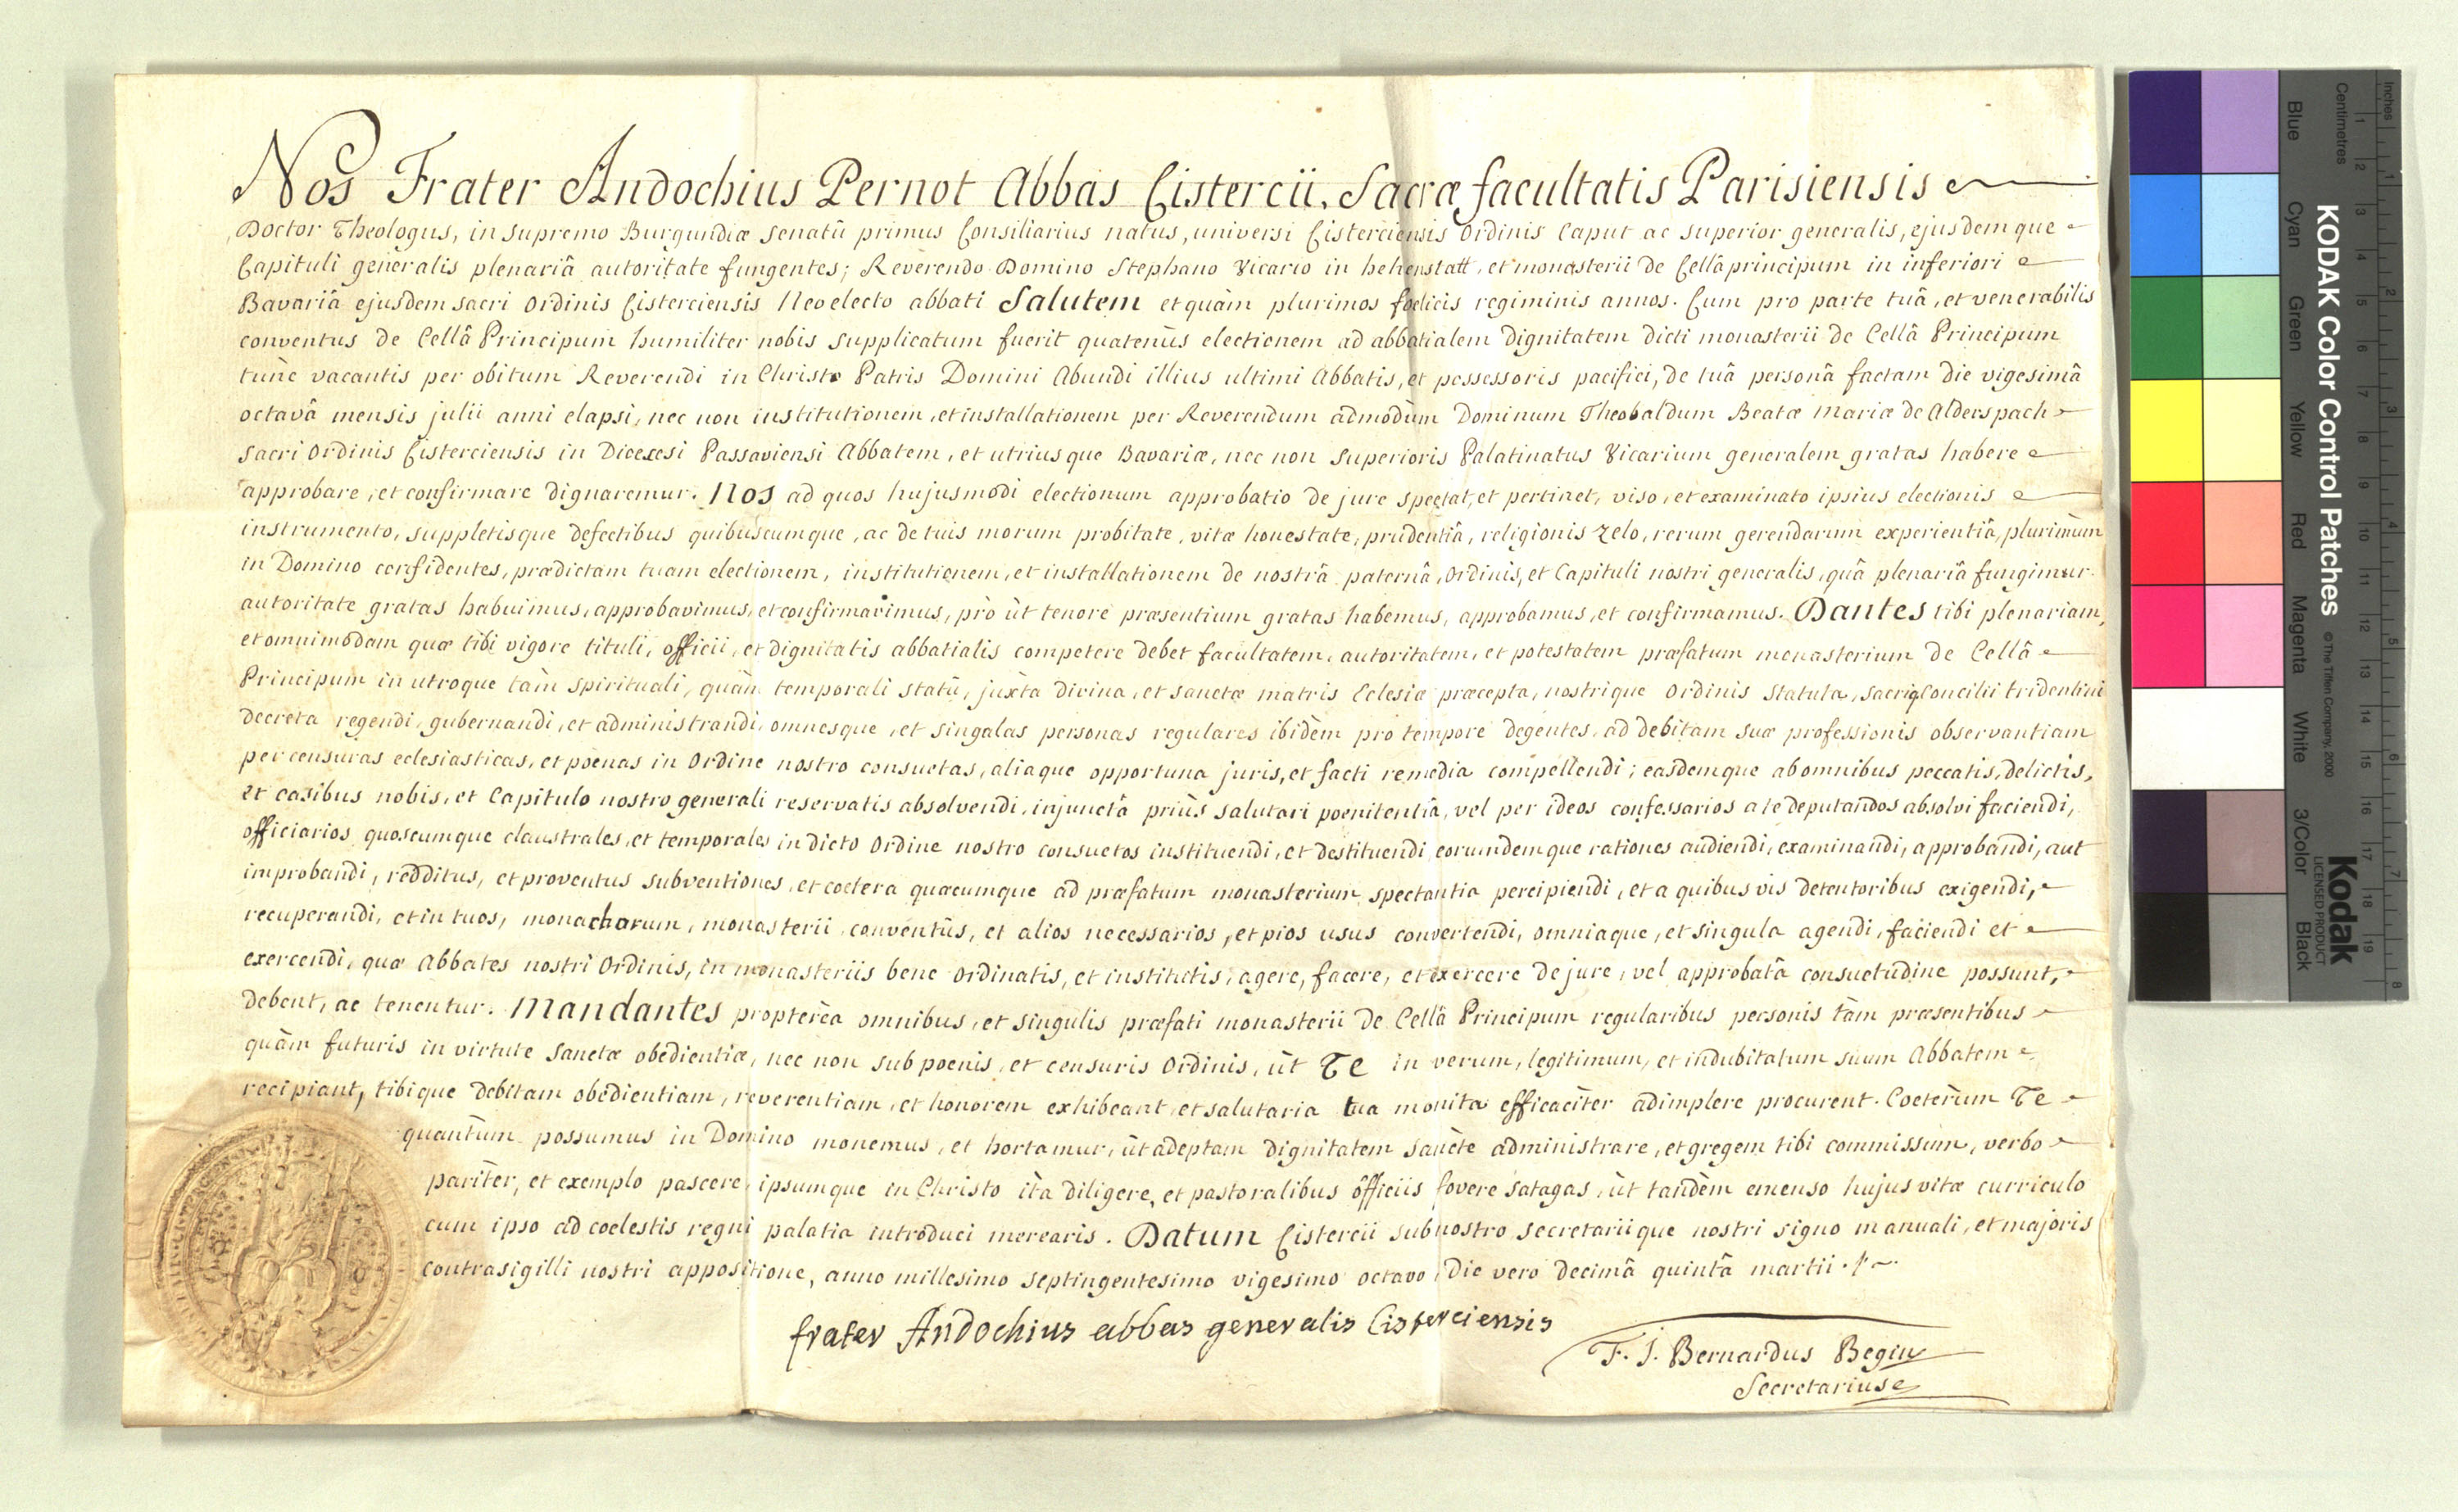 Nos Frater Andochius Pernot Abbas Cistercii, Sacræ facultatis Parisiensis
Doctor Theologus, in supremo Burgundiæ senatû primus Consiliarius natus, universi Cisterciensis Ordinis Caput ac superior generalis, ejusdemque
Capituli generalis plenariâ autoritate fungentes; Reverendo Domino Stephano Vicario in hehenstatt, et monasterii de Cellâ principum in inferiori
Bavariâ ejusdem sacri Ordinis Cisterciensis Neoelecto abbati Salutem et quàm plurimos foelicis regiminis annos. Cum pro parte tuâ, et venerabilis
conventus de Cellâ Principum humiliter nobis supplicatum fuerit quatenùs electionem ad abbatialem dignitatem dicti monasterii de Cellâ Principum
tunc vacantis per obitum Reverendi in Christo Patris Domini Abundi illius ultimi Abbatis, et possessoris pacifici, de tuâ personâ factam die vigesimâ
octavâ mensis julii anni elapsi, nec non institutionem, et installationem per Reverendum admodùm Dominum Theobaldum Beatæ Mariæ de Alderspach
sacri Ordinis Cisterciensis in Dioecesi Passaviensi Abbatem, et utriusque Bavariæ, nec non superioris Palatinatus Vicarium generalem gratas habere
approbare, et confirmare dignaremur. Nos ad quos hujusmodi electionum approbatio de jure spectat, et pertinet, viso, et examinato ipsius electionis
instrumento, suppletisque defectibus quibuscumque, ac de tuis morum probitate, vitæ honestate, prudentiâ, religionis zelo, rerum gerendarum experientiâ, plurimùm
in Domino confidentes, prædictam tuam electionem, institutionem, et installationem de nostrâ paternâ, Ordinis, et Capituli nostri generalis, quâ plenariâ fungimur
autoritate gratas habuimus, approbavimus, et confirmavimus, pro ùt tenore præsentium gratas habemus, approbamus, et confirmamus. Dantes tibi plenariam,
et omnimodam quæ tibi vigore tituli, officii, et dignitatis abbatialis competere debet facultatem, autoritatem, et potestatem præfatum monasterium de Cellâ
Principum in utroque tàm spirituali, quàm temporali statû, juxta divina, et sanctæ matris Eclesiæ præcepta, nostrique Ordinis statuta, sacriq Concilii tridentini
decreta regendi, gubernandi, et administrandi, omnesque, et singalas personas regulares ibidèm pro tempore degentes, ad debitam suæ professionis observantiam
per censuras eclesiasticas, et poenas in Ordine nostro consuetas, aliaque opportuna juris, et facti remedia compellendi; easdemque ab omnibus peccatis, delictis,
et casibus nobis, et Capitulo nostro generali reservatis absolvendi, injunctâ priùs salutari poenitentiâ, vel per ideos confessarios a te deputandos absolvi faciendi,
officiarios quoscumque claustrales, et temporales in dicto Ordine nostro consuetos instituendi, et destituendi, eorumdemque rationes audiendi, examinandi, approbandi, aut
improbandi, redditus, et proventus subventiones, et coetera quæcumque ad præfatum monasterium spectantia percipiendi, et a quibusvis detentoribus exigendi,
recuperandi, et in tuos, monachorum, monasterii, conventûs, et alios necessarios, et pios usus convertendi, omniaque, et singula agendi, faciendi et
exercendi, quæ Abbates nostri Ordinis, in monasteriis bene ordinatis, et institutis, agere, facere, et exercere de jure, vel approbatâ consuetudine possunt,
debent, ac tenentur. Mandantes proptereà omnibus, et singulis præfati monasterii de Cellâ Principum regularibus personis tàm præsentibus
quàm futuris in virtute sanctæ obedientiæ, nec non sub poenis, et censuris Ordinis, ùt Te in verum, legitimum, et indubitatum suum Abbatem
recipiant, tibique debitam obedientiam, reverentiam, et honorem exhibeant, et salutaria tua monita efficacitèr adimplere procurent. Coeterùm Te
quantùm possumus in Domino monemus, et hortamur, ùt adeptam dignitatem sanctè administrare, et gregem tibi commissum, verbo
paritèr, et exemplo pascere, ipsumque in Christo ità diligere, et pastoralibus officiis fovere satagas, ùt tandèm emenso hujus vitæ curriculo
cum ipso ad coelestis regni palatia introduci merearis. Datum Cistercii sub nostro, secretariique nostri signo manuali, et majoris
contrasigilli nostri appositione, anno millesimo septingentesimo vigesimo octavo, die vero decimâ quintâ martii.
frater Andochius abbas generalis Cisterciensis
F. J. Bernardus Begin
Secretarius
KODAK Color Control Patches
© The Tiffen Company, 2000
Kodak
LICENSED PRODUCT
Inches
Centimetres
Blue Cyan Green Yellow Red Magenta White 3/Color Black
1 2 3 4 5 6 7 8 9 10 11 12 13 14 15 16 17 18 19
1 2 3 4 5 6 7 8